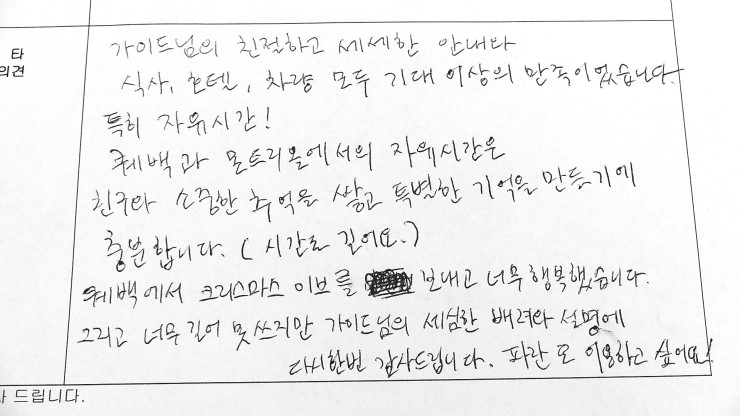 타
의견
가이드님의 친절하고 세세한 안내와
식사, 호텔, 차량 모두 기대 이상의 만족이었습니다.
특히 자유시간!
퀘백과 몬트리올에서의 자유시간은
친구와 소중한 추억을 쌓고 특별한 기억을 만들기에
충분합니다. (시간도 길어요.)
퀘백에서 크리스마스 이브를 보내고 너무 행복했습니다.
그리고 너무 길어 못쓰지만 가이드님의 세심한 배려와 설명에
다시한번 감사드립니다. 파란 또 이용하고 싶어요!
사 드립니다.